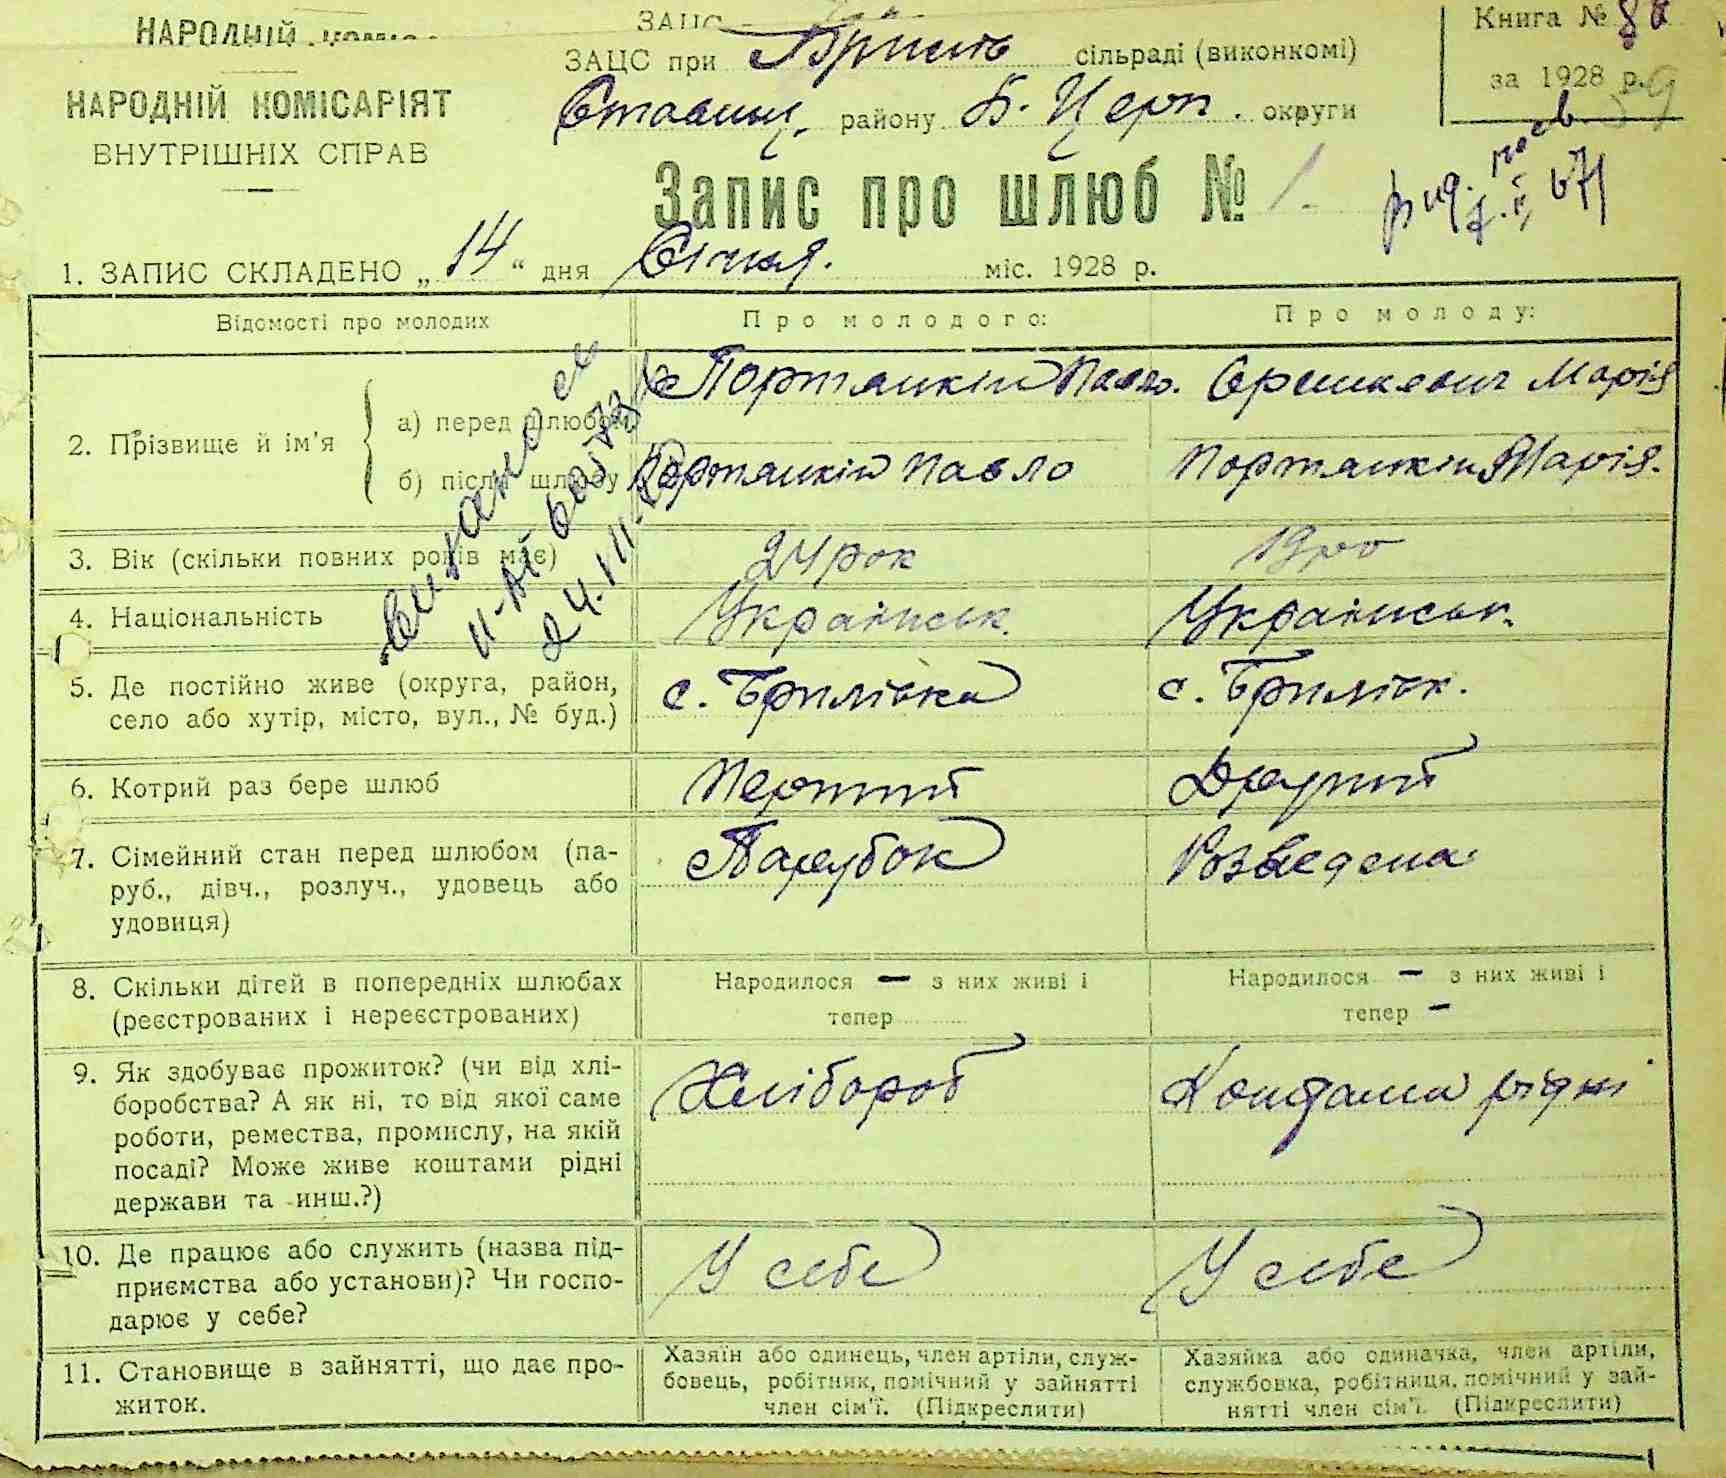 НАРОДНІЙ КОМІС
ЗАЦС
Книга № 88
ЗАЦС при сільраді (виконкомі)
за 1928 р.
НАРОДНІЙ КОМІСАРІЯТ
Ставищ. району Б. Церк. округи
ВНУТРІШНІХ СПРАВ
Запис про шлюб № 1.
1. ЗАПИС СКЛАДЕНО „ 14 “ дня Січня. міс. 1928 р.
Відомості про молодих
Про молодого:
Про молоду:
2. Прізвище й ім'я
а) перед шлюбом
Портянкін Павло.
Марія
б) після шлюбу
Портянкін Павло
Портянкін Марія.
3. Вік (скільки повних років має)
24 рок
4. Національність
Українськ.
Українськ.
5. Де постійно живе (округа, район,
село або хутір, місто, вул., № буд.)
с. Брилівка
с. Брилівк.
6. Котрий раз бере шлюб
Перший
Другий
7. Сімейний стан перед шлюбом (па-
руб., дівч., розлуч., удовець або
удовиця)
Парубок
Розведена
8. Скільки дітей в попередніх шлюбах
(реєстрованих і нереєстрованих)
Народилося — з них живі і
тепер
Народилося — з них живі і
тепер —
9. Як здобуває прожиток? (чи від хлі-
боробства? А як ні, то від якої саме
роботи, ремества, промислу, на якій
посаді? Може живе коштами рідні
держави та инш.?)
Хлібороб
рідні
10. Де працює або служить (назва під-
приємства або установи)? Чи госпо-
дарює у себе?
У себе
У себе
11. Становище в зайнятті, що дає про-
житок.
Хазяїн або одинець, член артіли, служ-
бовець, робітник, помічний у зайнятті
член сім'ї. (Підкреслити)
Хазяйка або одиначка, член артіли,
службовка, робітниця, помічний у зай-
нятті член сім'ї. (Підкреслити)